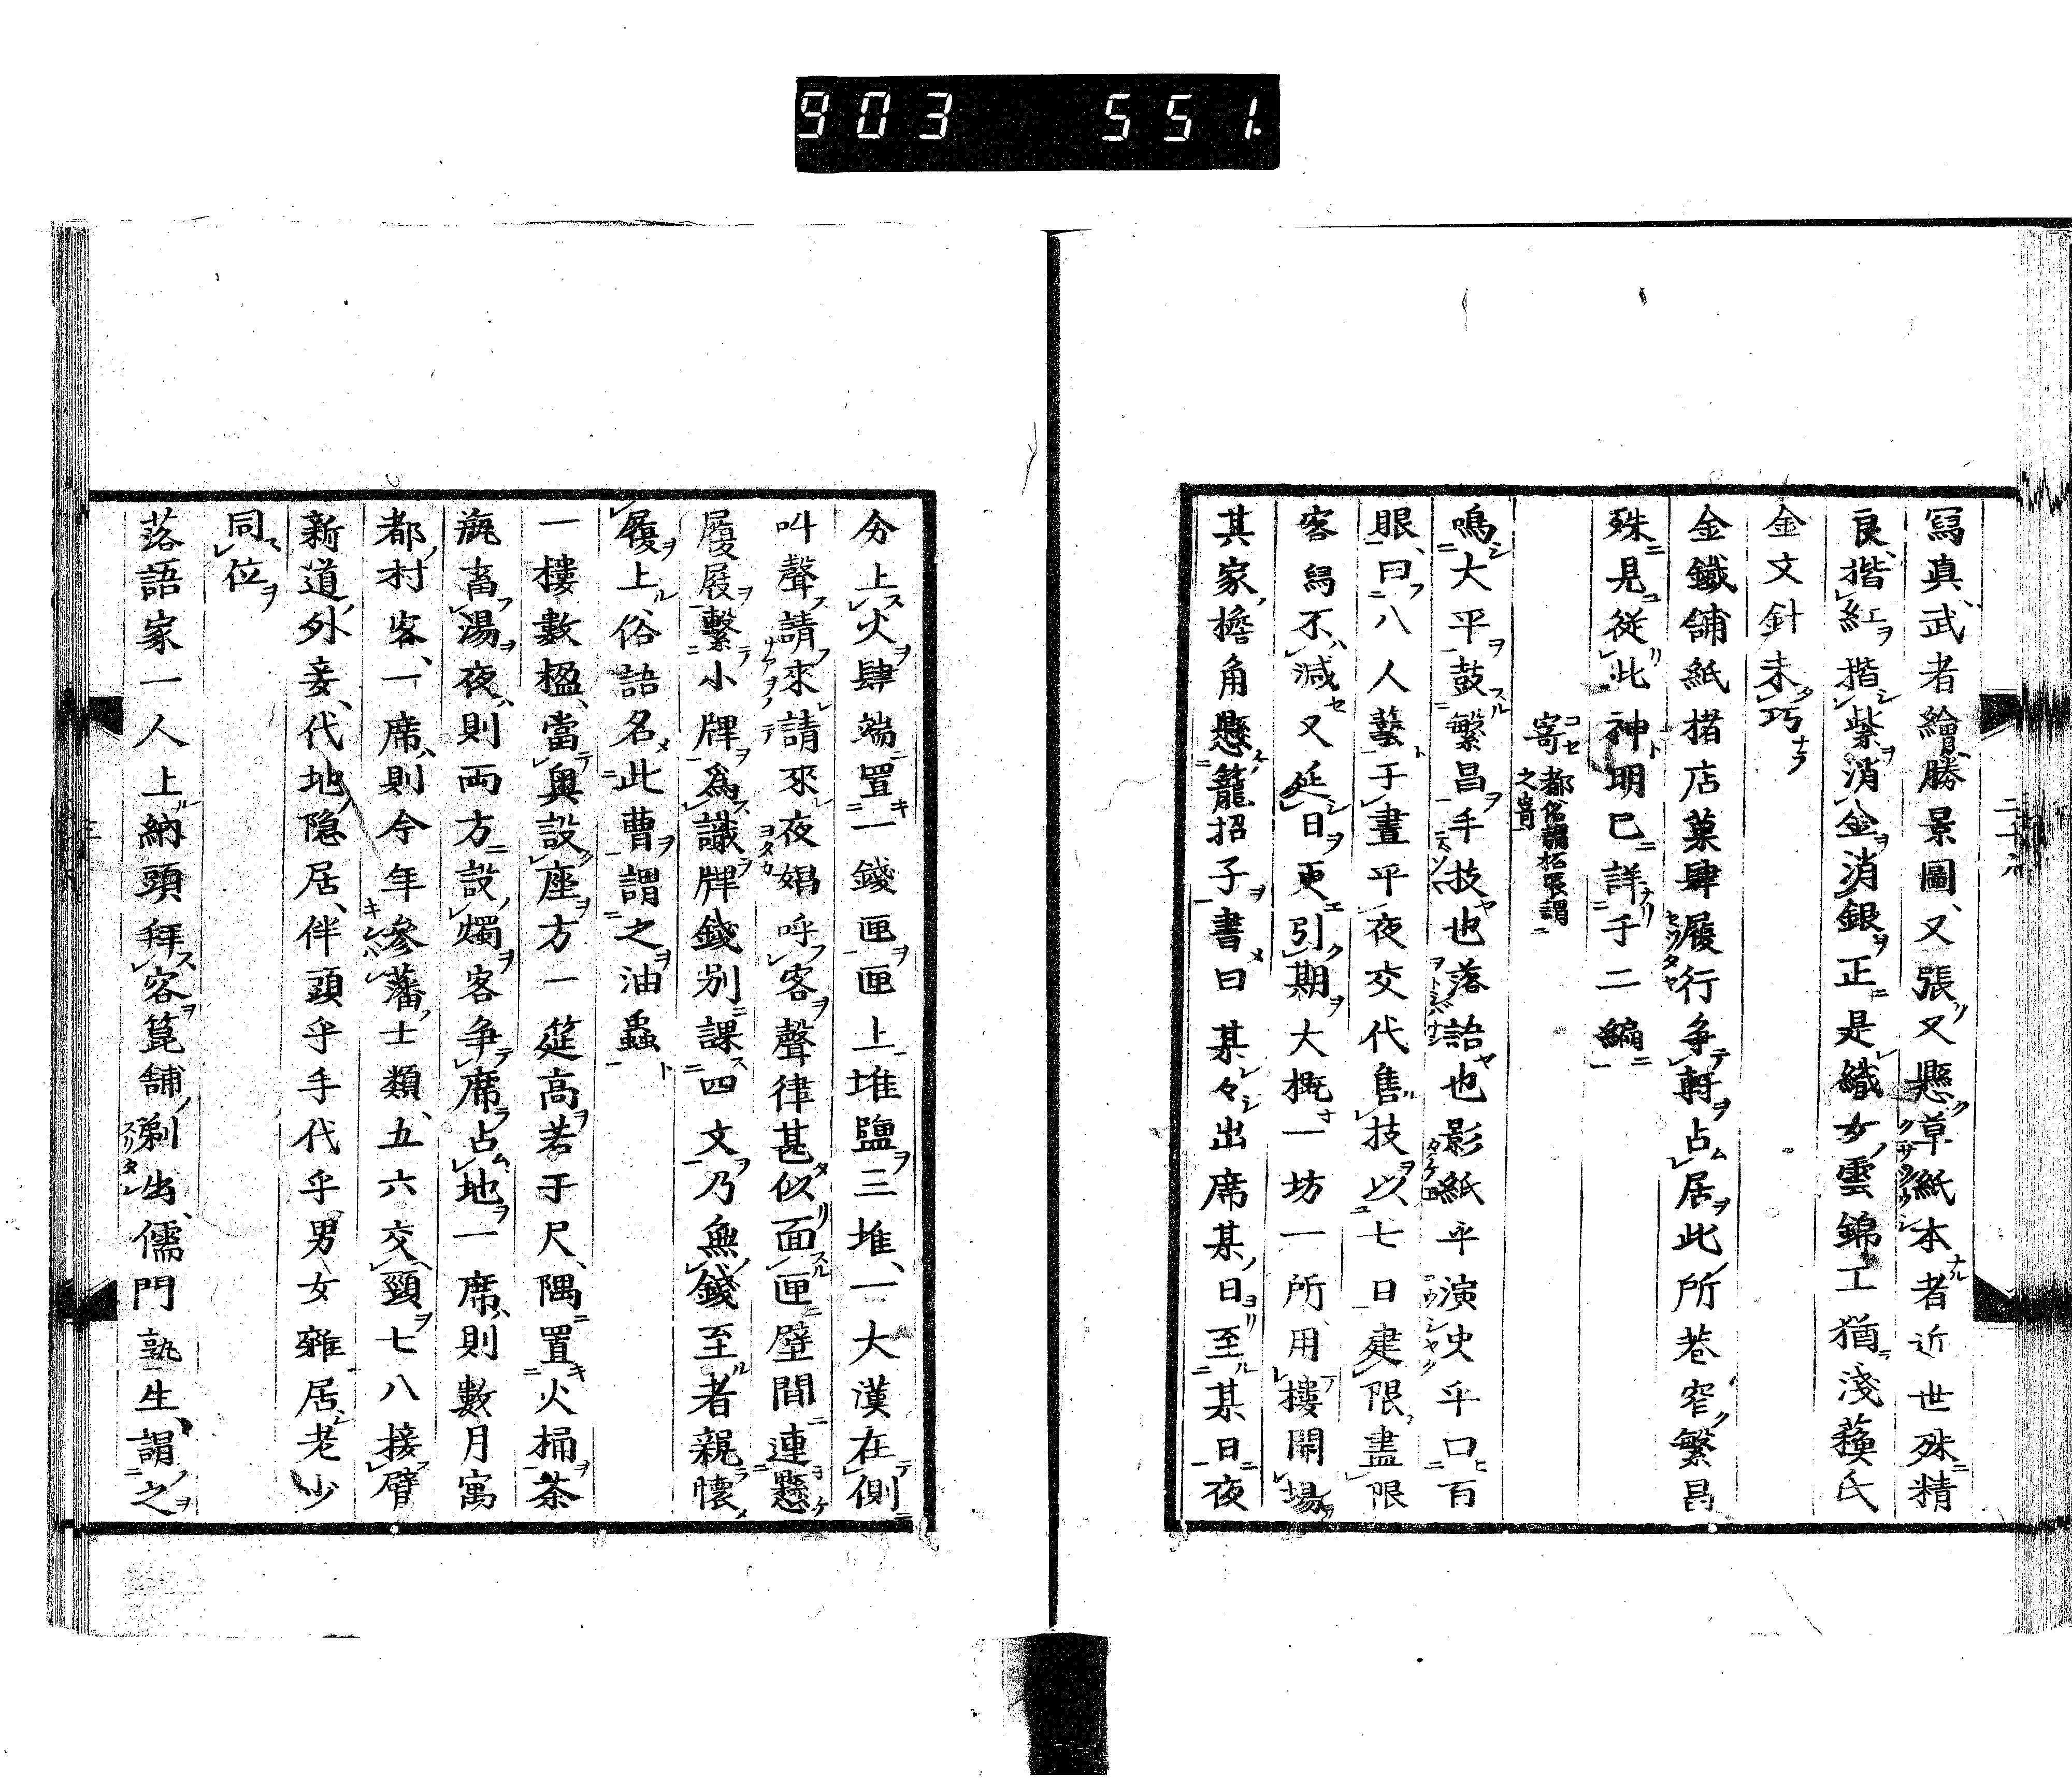 903 551.
寫真、武者繪、勝景圖、又張又懸、草紙本者近世殊精
良、揩紅揩紫、消金消銀、正是織女雲錦工猶淺、蘓氏
金文針未巧
金鐵舖紙楮店菓肆履行爭軒占居此所巷窄繁昌
殊見從此神明已詳于二編
寄 都俗謂招張謂之寄
鳴大平鼓繁昌手技也落語也影紙乎演史乎口百
眼、曰八人藝于晝乎夜交代售技以七日建限盡限
客舄不減又延日更引期大概一坊一所用樓開場
其家檐角懸籠招子書曰某々出席某日至某日夜
分上火肆端置一錢匣匣上堆鹽三堆、一大漢在側
叫聲請來請來夜娼呼客聲律甚似面匣壁間連懸
履屐繫小牌爲識牌錢別課四文乃無錢至者親懷
履上俗語名此曹謂之油蟲
一樓數楹、當奥設座方一筵高若于尺、隅置火桶茶
瓶畜湯夜則両方設燭客爭席占地一席則數月寓
都村客、一席則今年參藩士類、五六交頸七八接臂
新道外妾、代地隱居、伴頭乎手代乎男女雜居老少
同位
落語家一人上納頭拜客篦舖剃出、儒門塾生、謂之